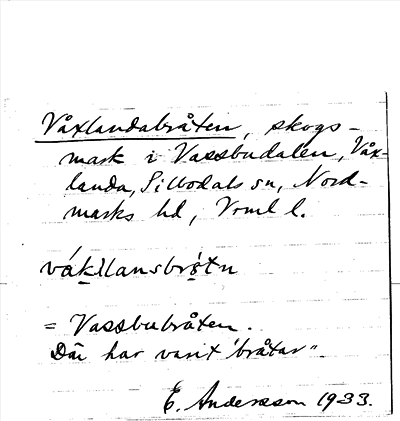 Våxlandabråten, skogs-
mark i Vassbudalen, Våx-
landa, Silbodals sn, Nord-
marks hd, Vrml l.
= Vassbubråten.
Där har varit "bråtar".
E. Andersson 1933.